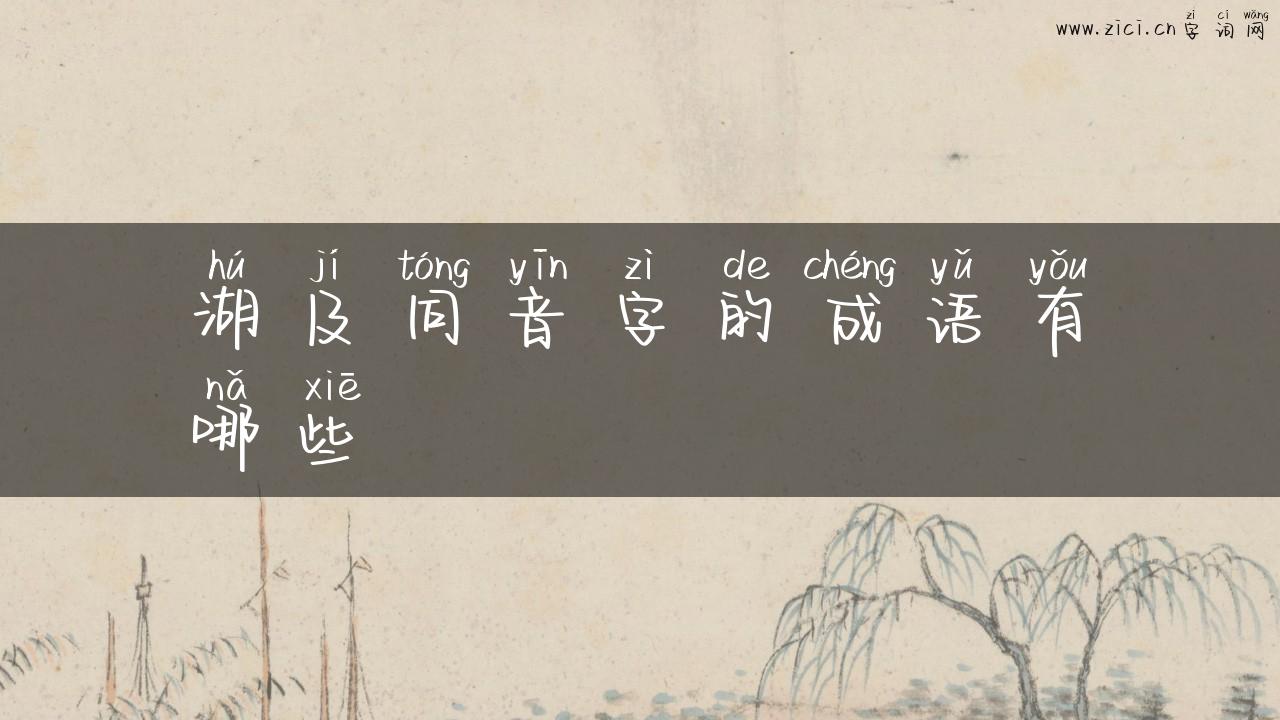 zì cí wǎng
www.zici.cn 字词网
hú jí tóng yīn zì de chéng yǔ yǒu
湖及同音字的成语有
nǎ xiē
哪些